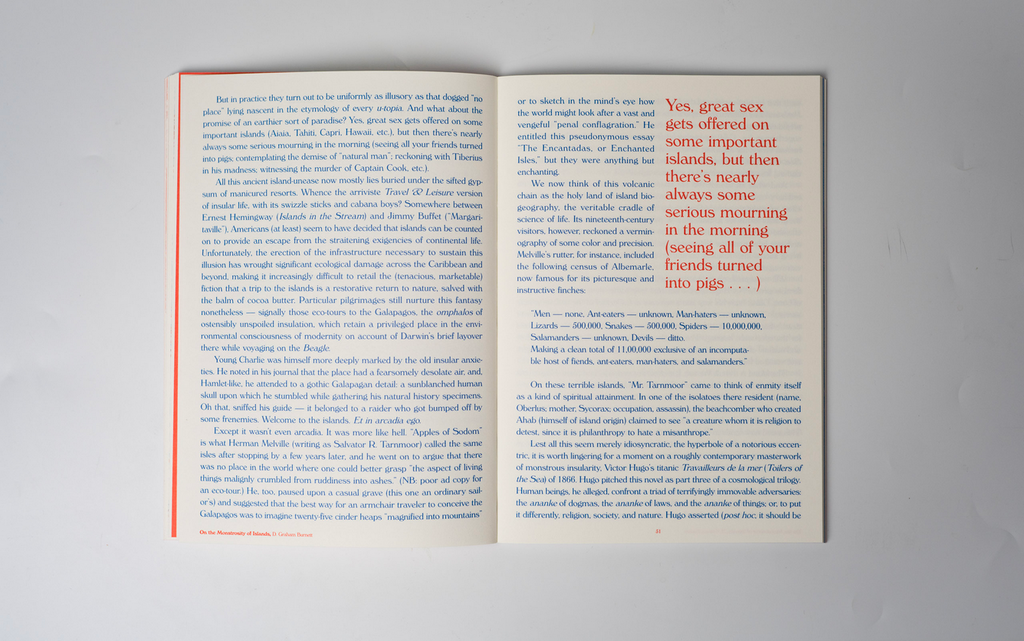 But in practice they turn out to be uniformly as illusory as that dogged "no
place" lying nascent in the etymology of every u-topia. And what about the
promise of an earthier sort of paradise? Yes, great sex gets offered on some
important islands (Aiaia, Tahiti, Capri, Hawaii, etc.), but then there's nearly
always some serious mourning in the morning (seeing all your friends turned
into pigs; contemplating the demise of "natural man"; reckoning with Tiberius
in his madness; witnessing the murder of Captain Cook, etc.).
All this ancient island-unease now mostly lies buried under the sifted gyp-
sum of manicured resorts. Whence the arriviste Travel & Leisure version
of insular life, with its swizzle sticks and cabana boys? Somewhere between
Ernest Hemingway (Islands in the Stream) and Jimmy Buffet ("Margari-
taville"), Americans (at least) seem to have decided that islands can be counted
on to provide an escape from the straitening exigencies of continental life.
Unfortunately, the erection of the infrastructure necessary to sustain this
illusion has wrought significant ecological damage across the Caribbean and
beyond, making it increasingly difficult to retail the (tenacious, marketable)
fiction that a trip to the islands is a restorative return to nature, salved with
the balm of cocoa butter. Particular pilgrimages still nurture this fantasy
nonetheless — signally those eco-tours to the Galapagos, the omphalos of
ostensibly unspoiled insulation, which retain a privileged place in the envi-
ronmental consciousness of modernity on account of Darwin's brief layover
there while voyaging on the Beagle.
Young Charlie was himself more deeply marked by the old insular anxie-
ties. He noted in his journal that the place had a fearsomely desolate air, and,
Hamlet-like, he attended to a gothic Galapagan detail: a sunblanched human
skull upon which he stumbled while gathering his natural history specimens.
Oh that, sniffed his guide — it belonged to a raider who got bumped off by
some frenemies. Welcome to the islands. Et in arcadia ego.
Except it wasn't even arcadia. It was more like hell. "Apples of Sodom"
is what Herman Melville (writing as Salvator R. Tarnmoor) called the same
isles after stopping by a few years later, and he went on to argue that there
was no place in the world where one could better grasp "the aspect of living
things malignly crumbled from ruddiness into ashes." (NB: poor ad copy for
an eco-tour.) He, too, paused upon a casual grave (this one an ordinary sail-
or's) and suggested that the best way for an armchair traveler to conceive the
Galapagos was to imagine twenty-five cinder heaps "magnified into mountains"
On the Monstrosity of Islands, D. Graham Burnett
or to sketch in the mind's eye how
the world might look after a vast and
vengeful "penal conflagration." He
entitled this pseudonymous essay
"The Encantadas, or Enchanted
Isles," but they were anything but
enchanting.
We now think of this volcanic
chain as the holy land of island bio-
geography, the veritable cradle of
science of life. Its nineteenth-century
visitors, however, reckoned a vermin-
ography of some color and precision.
Melville's rutter, for instance, included
the following census of Albemarle,
now famous for its picturesque and
instructive finches:
Yes, great sex
gets offered on
some important
islands, but then
there's nearly
always some
serious mourning
in the morning
(seeing all of your
friends turned
into pigs . . . )
"Men — none, Ant-eaters — unknown, Man-haters — unknown,
Lizards — 500,000, Snakes — 500,000, Spiders — 10,000,000,
Salamanders — unknown, Devils — ditto.
Making a clean total of 11,00,000 exclusive of an incomputa-
ble host of fiends, ant-eaters, man-haters, and salamanders."
On these terrible islands, "Mr. Tarnmoor" came to think of enmity itself
as a kind of spiritual attainment. In one of the isolatoes there resident (name,
Oberlus; mother, Sycorax; occupation, assassin), the beachcomber who created
Ahab (himself of island origin) claimed to see "a creature whom it is religion to
detest, since it is philanthropy to hate a misanthrope."
Lest all this seem merely idiosyncratic, the hyperbole of a notorious eccen-
tric, it is worth lingering for a moment on a roughly contemporary masterwork
of monstrous insularity, Victor Hugo's titanic Travailleurs de la mer (Toilers of
the Sea) of 1866. Hugo pitched this novel as part three of a cosmological trilogy.
Human beings, he alleged, confront a triad of terrifyingly immovable adversaries:
the ananke of dogmas, the ananke of laws, and the ananke of things; or, to put
it differently, religion, society, and nature. Hugo asserted (post hoc, it should be